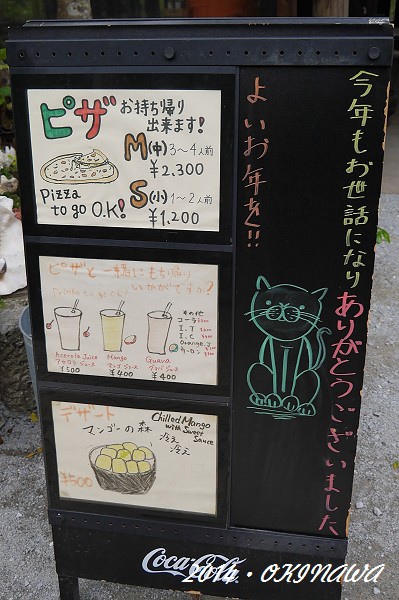 今年もお世話になりありがとうございました
よいお年を!!
ピザ お持ち帰り
出来ます!
M(中) 3～4人前
¥2,300
S(小) 1～2人前
¥1,200
Pizza
to go O.K!
ピザと一緒にもち帰り
いかがですか?
その他
コーラ
I.T
I.C
Orange.J
Acerola Juice
アセロラジュース
¥500
Mango
マンゴジュース
¥400
Guava
グァバジュース
¥400
デザート
マンゴーの森
Chilled Mango
with Sweet
Sauce
冷え
冷え
¥500
Coca-Cola
2014・OKINAWA